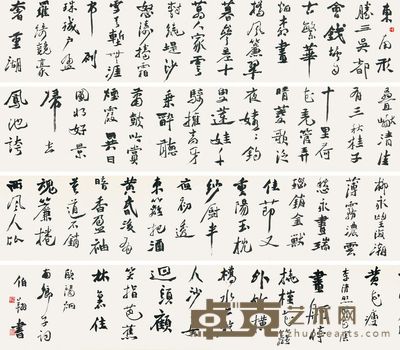 東南形
勝三吳都
會錢塘自
古繁華
烟柳畫
橋風簾翠
幕參差十
萬人家雲
樹繞堤沙
怒濤捲霜
雪天塹無涯
市列
珠璣戶盈
羅綺競豪
奢重湖
疊巘清佳
有三秋桂子
十里荷
花羌管弄
晴菱歌泛
夜嬉嬉釣
叟蓮娃千
騎擁高牙
乘醉聽
簫鼓吟賞
煙霞異日
圖將好景
歸去
鳳池誇
柳永望海潮
薄霧濃雲
愁永晝瑞
腦銷金獸
佳節又
重陽玉枕
紗廚半
夜涼初透
東籬把酒
黃昏後有
暗香盈袖
莫道不銷
魂簾捲
西風人似
黃花瘦
李清照醉花陰
畫舸停
橈槿花籬
外竹橫
橋水上遊
人沙上女
迴頭顧
笑指芭蕉
林裏住
歐陽炯
南鄉子詞
伯
書